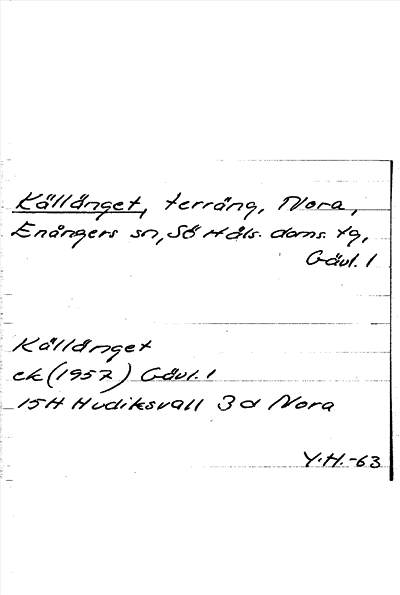 Källänget, terräng, Nora,
Enångers sn, Sö Häls. doms. tg,
Gävl. l
Källänget
ek (1957) Gävl. l
15H Hudiksvall 3d Nora
Y.H.-63